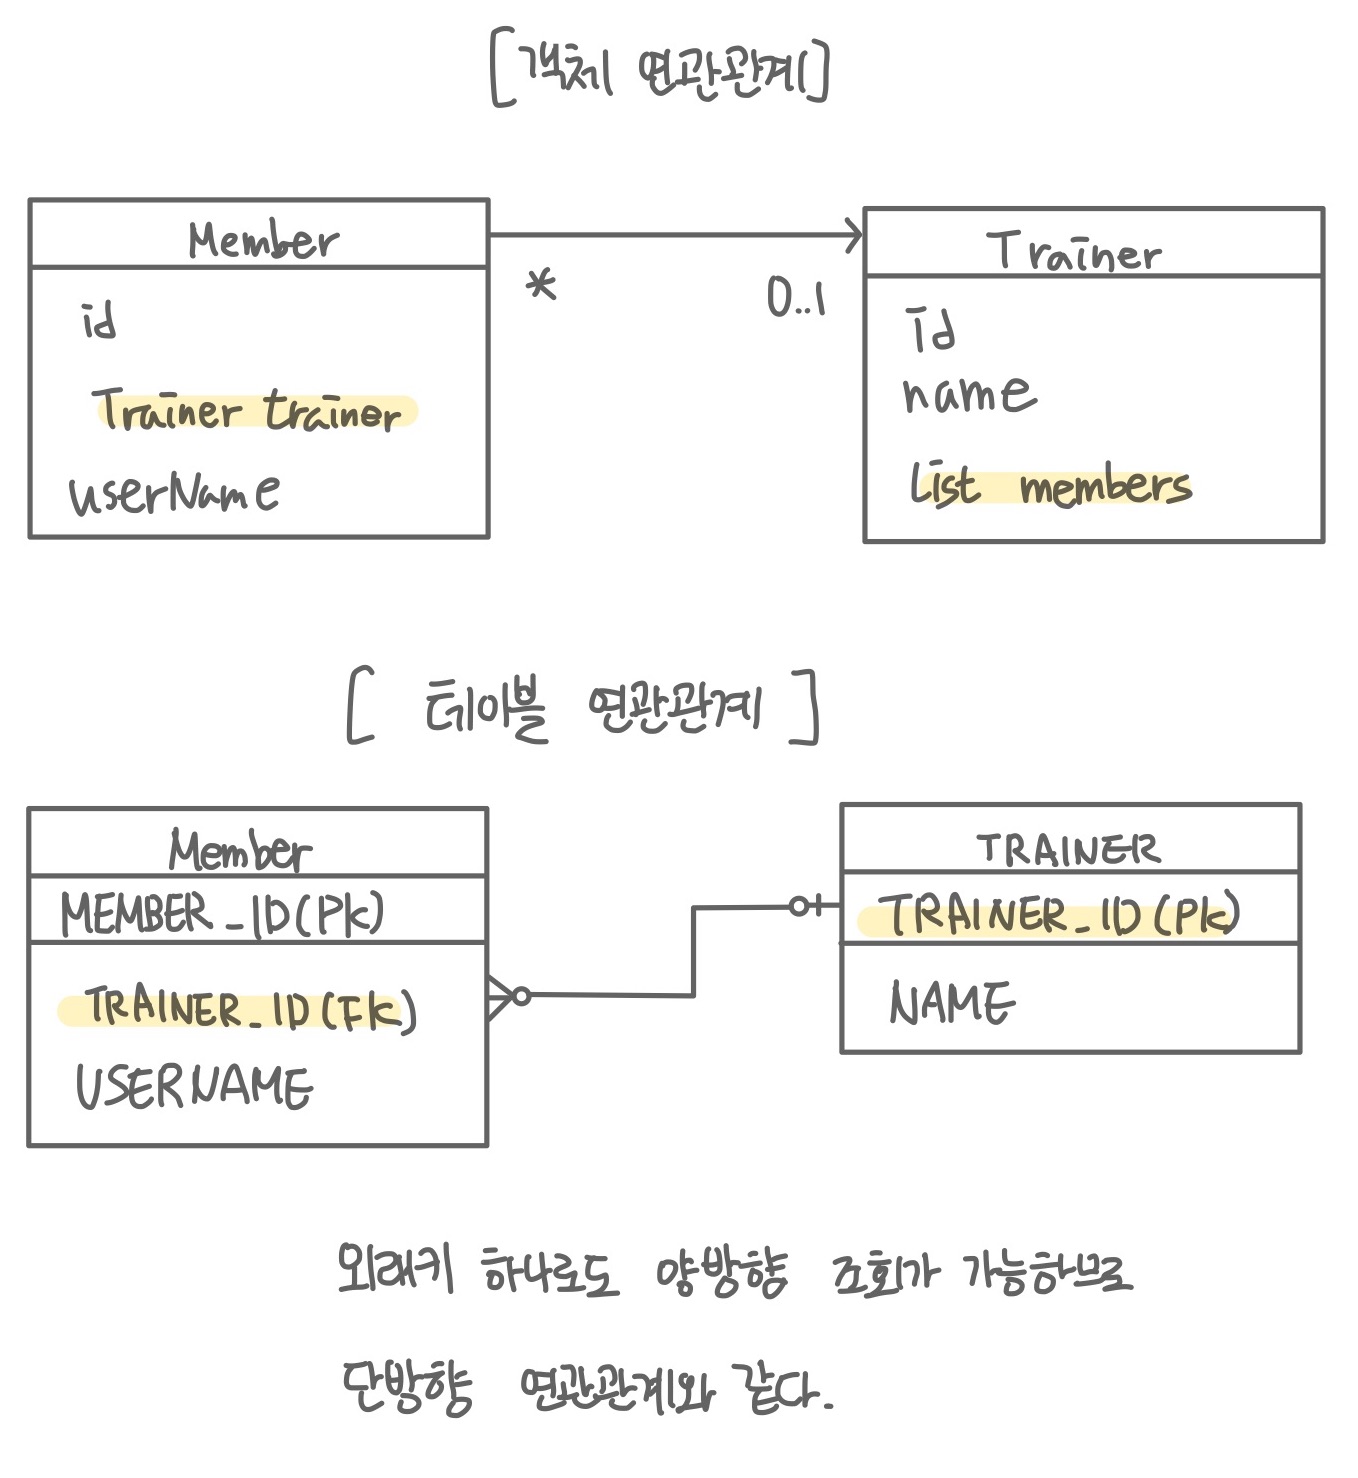 [객체 연관관계]
Member
*
0..1
Trainer
id
Trainer trainer
userName
id
name
List members
[ 테이블 연관관계 ]
Member
MEMBER_ID(PK)
TRAINER_ID(FK)
USERNAME
TRAINER
TRAINER_ID(PK)
NAME
외래키 하나로도 양방향 조회가 가능하므로
단방향 연관관계와 같다.